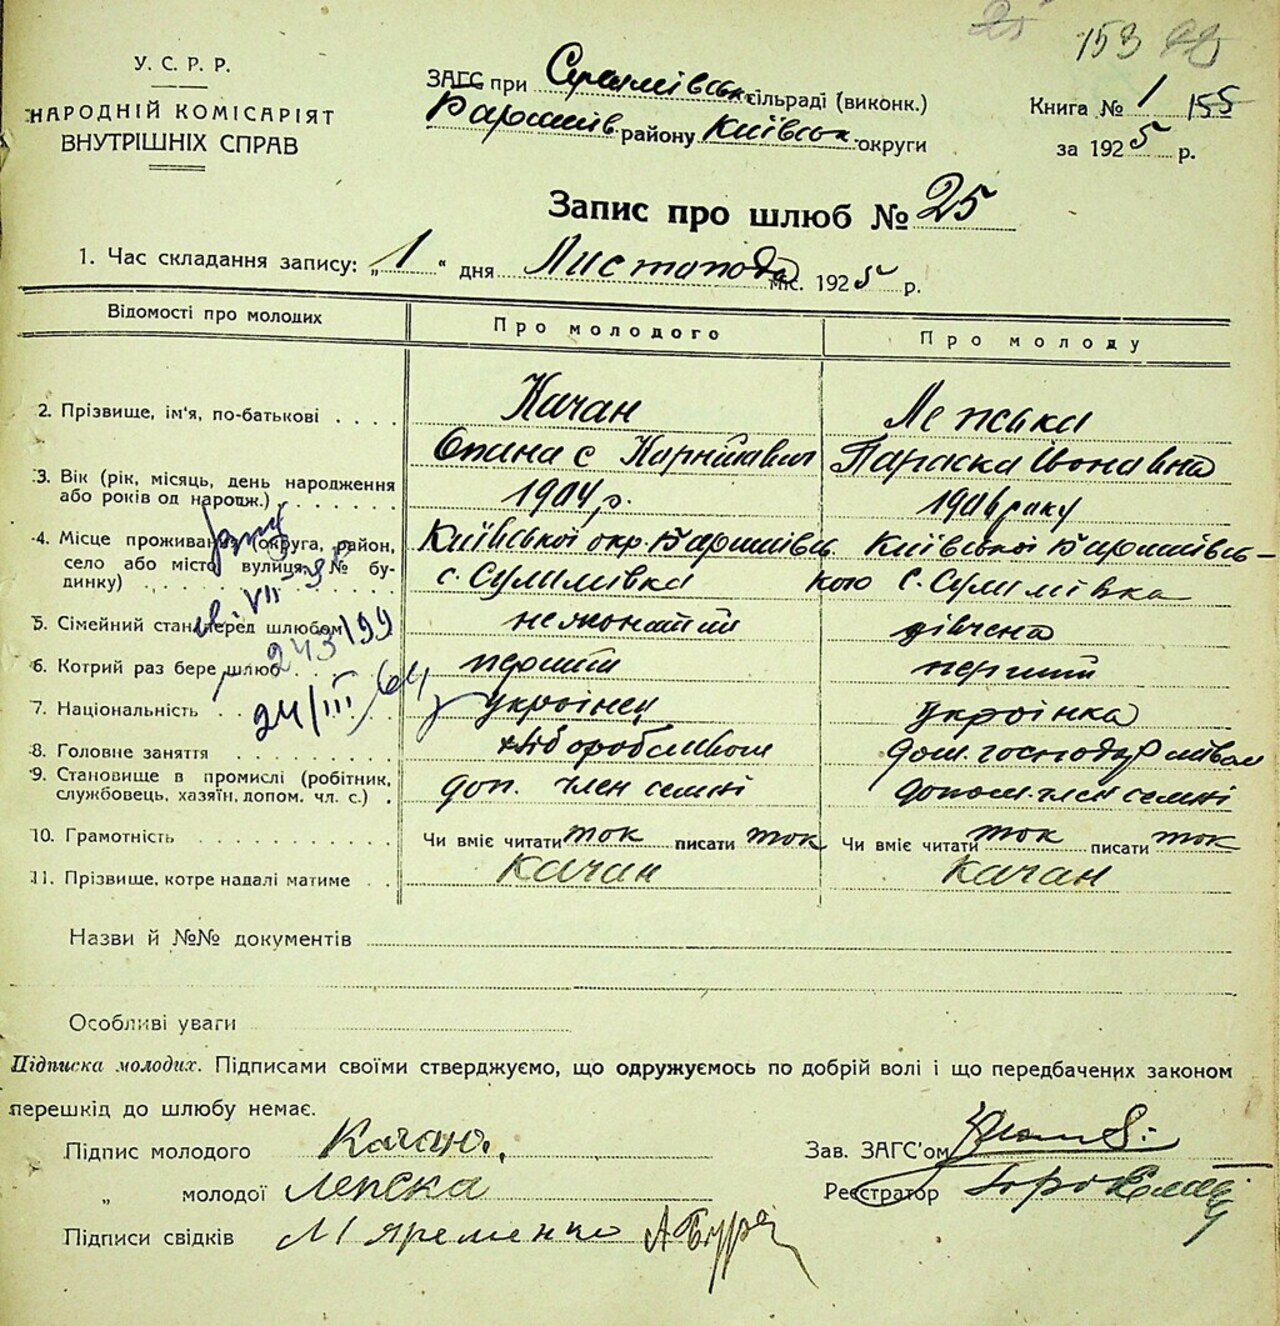 153
У. С. Р. Р.
НАРОДНІЙ КОМІСАРІЯТ
ВНУТРІШНІХ СПРАВ
ЗАГС при Сулимівськ. сільраді (виконк.)
Баришів. району Київськ. округи
Книга № 1 155
за 1925 р.
Запис про шлюб № 25
1. Час складання запису: „1“ дня Листопода міс. 1925 р.
Відомості про молодих Про молодого Про молоду
2. Прізвище, ім'я, по-батькові . . . . Качан Лепська
Опанас Карпович Параска Івановна
3. Вік (рік, місяць, день народження або років од нарошж.) . . . . . . 1904 р. 1906 року
4. Місце проживання (округа, район, село або місто, вулиця, № будинку) . . Київської окр. Баришівсь. с. Сулимівка Київської Баришівською с. Сулимівка
5. Сімейний стан перед шлюбом нежонатий дівчена
6. Котрий раз бере шлюб . . перший перший
7. Національність . . українец українка
8. Головне заняття . . . хліборобством дом. господарством
9. Становище в промислі (робітник, службовець, хазяїн, допом. чл. с.) . доп. член семні допом. член семні
10. Грамотність . . . Чи вміє читати ток писати ток Чи вміє читати ток писати ток
11. Прізвище, котре надалі матиме . . Качан Качан
243/99
24/III/64
Назви й №№ документів
Особливі уваги
Підписка молодих. Підписами своїми стверджуємо, що одружуємось по добрій волі і що передбачених законом
перешкід до шлюбу немає.
Підпис молодого Качан. Зав. ЗАГС'ом
„ молодої Лепска Реєстратор
Підписи свідків М Яременко